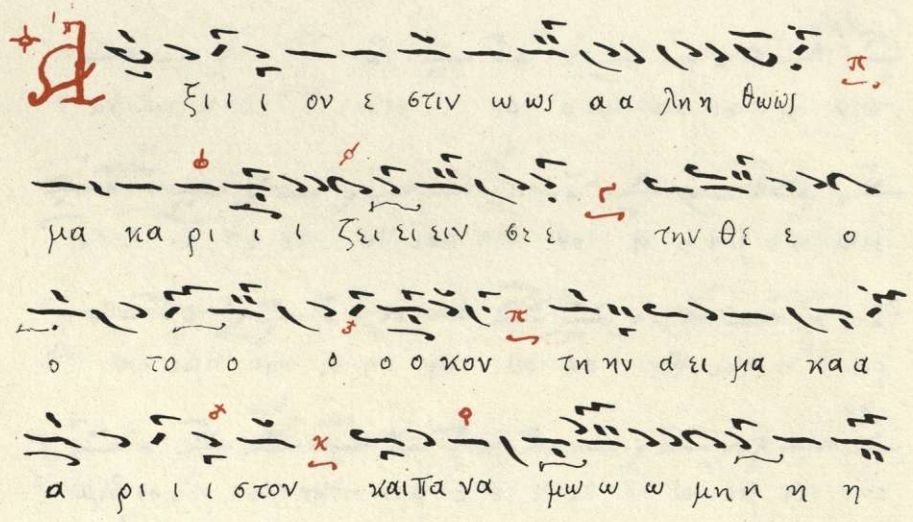 Α ξι ι ι ον ε στιν ω ως α α λη η θω ως π
μα κα ρι ι ι ζει ει ειν σε ε Γ την θε ε ο
ο το ο ο ο ο κον π τη ην αει μα κα α
α ρι ι ι στον κ και Πα να μω ω ω μη η η η